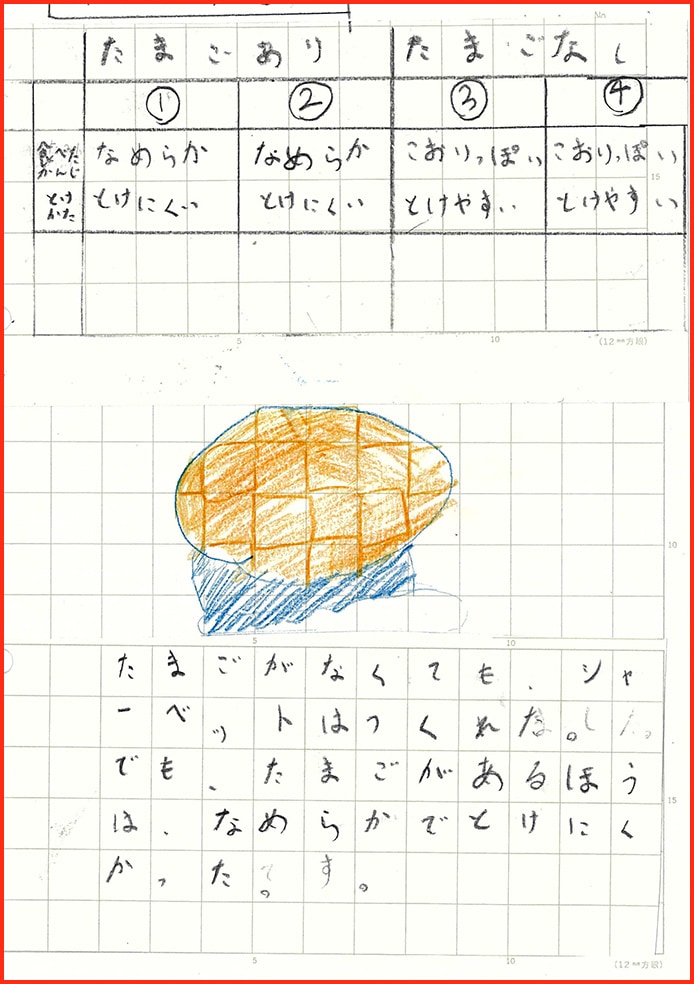 No
たまごあり たまごなし
① ② ③ ④
食べたかんじ なめらか なめらか こおりっぽい こおりっぽい
とけかた とけにくい とけにくい とけやすい とけやすい
15
5 10 (12㎜方眼)
10
5 10
たまごがなくても、シャ
ーベットはつくれた。
でも、たまごがあるほう
は、なめらかでとけにく
15
かった。です。
5 10 (12㎜方眼)